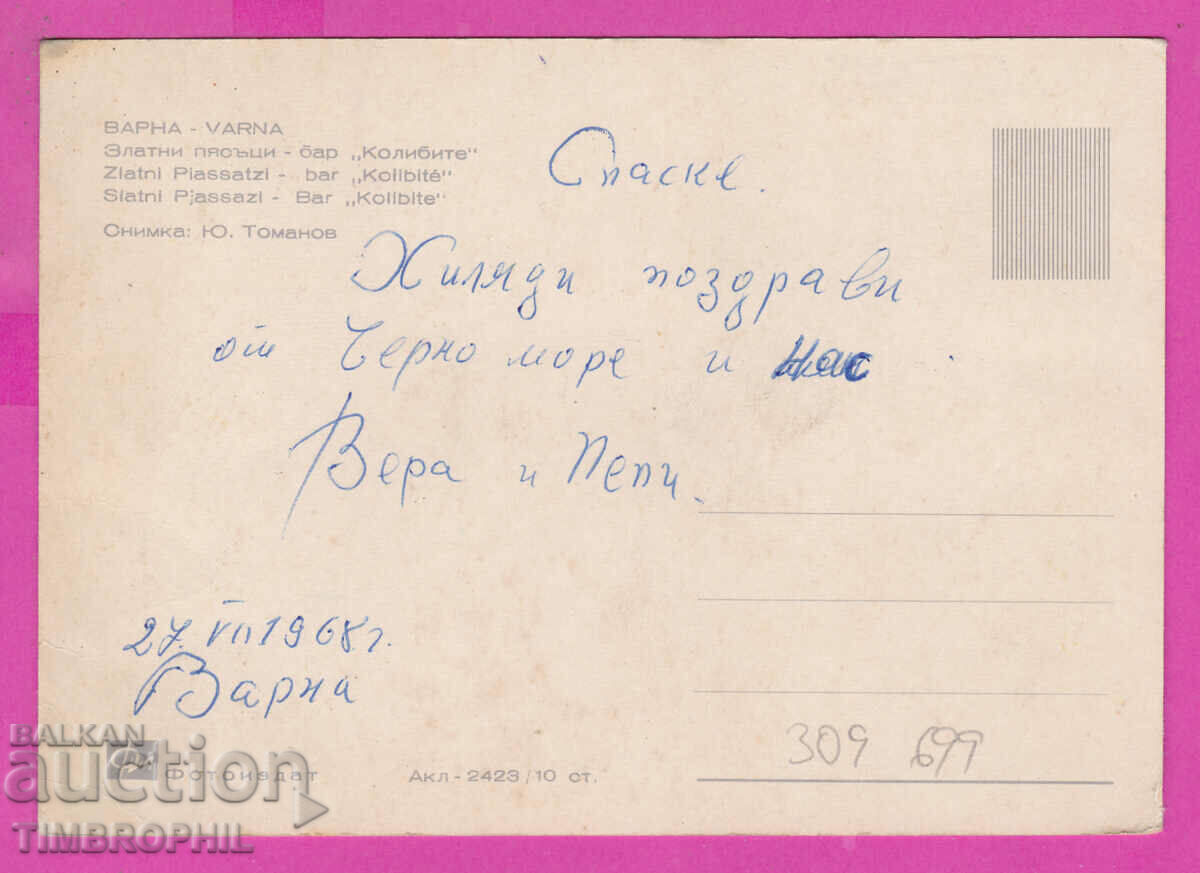 ВАРНА - VARNA
Златни пясъци - бар „Колибите“
Zlatni Piassatzi - bar „Kolibité“
Slatni Pjassazi - Bar „Kolibite“
Снимка: Ю. Томанов
Спаске.
Хиляди поздрави
от Черно море и нас
Вера и Пепи.
27. VII 1968 г.
Варна
BALKAN
auction
Фотоиздат
Акл-2423/10 ст.
309 699
TIMBROPHIL